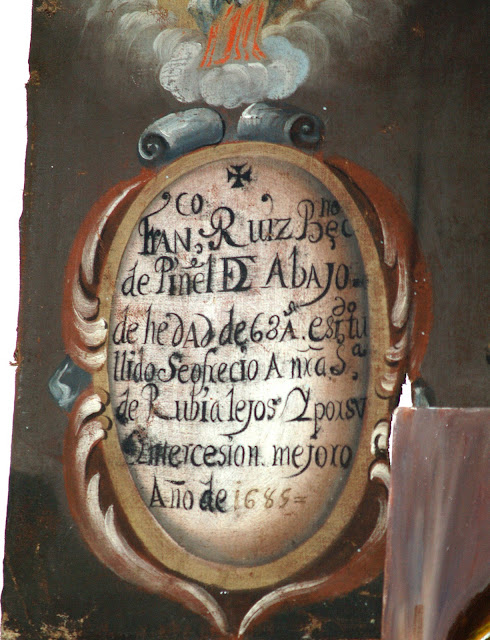 ✠
Franco, Ruiz Bęcno
de Piñel DE Abajo.
de hedAd de 63 As. estando tu
llido Se ofrecio A nxa Sa,
de Rubialejos Y por su
Yntercesion. mejoro
Año de 1685=